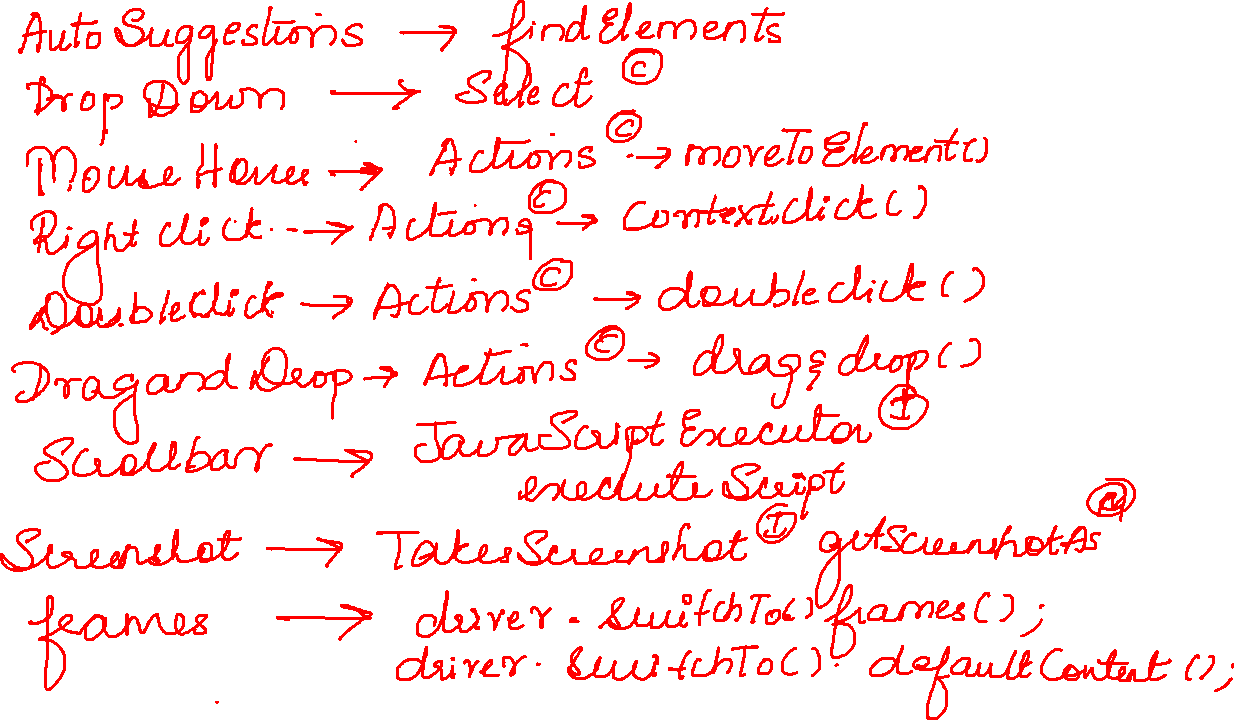 Auto Suggestions → findElements
Drop Down → Select ©
Mouse Hover → Actions © → moveToElement()
Right click → Actions © → Contextclick()
DoubleClick → Actions © → doubleclick()
Drag and Drop → Actions © → drag&drop()
Scrollbar → JavaScriptExecutor Ⓘ
executeScript
Screenshot → TakesScreenshot Ⓘ getScreenshotAs Ⓜ
frames → driver.switchTo().frames();
driver.switchTo().defaultContent();